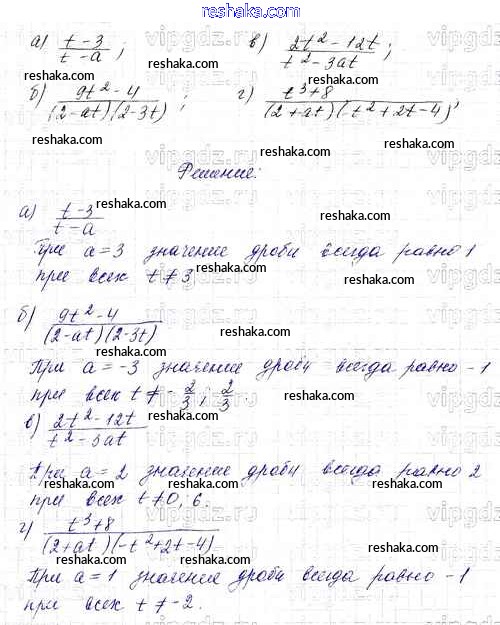 reshaka.com
а) t-3/t-a ; в) 2t²-12t/t²-3at ;
б) 9t²-4/(2-at)(2-3t) ; г) t³+8/(2+at)(-t²+2t-4) ;
Решение:
а) t-3/t-a
При a=3 значение дроби всегда равно 1
при всех t≠3
б) 9t²-4/(2-at)(2-3t)
При a=-3 значение дроби всегда равно -1
при всех t≠ -2/3 ; 2/3 .
в) 2t²-12t/t²-3at
При a=2 значение дроби всегда равно 2
при всех t≠0; 6.
г) t³+8/(2+at)(-t²+2t-4)
При a=1 значение дроби всегда равно -1
при всех t≠-2.